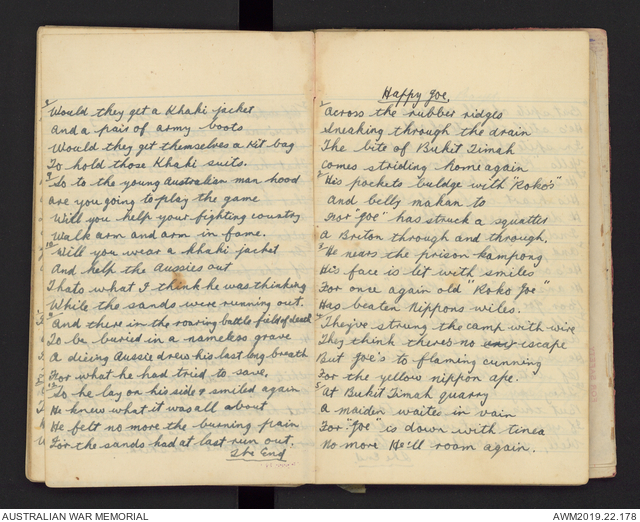 8 Would they get a Khaki jacket
And a pair of army boots
Would they get themselves a Kit bag
To hold those Khaki suits.
9 So to the young Australian man hood
are you going to play the game
Will you help your fighting country
Walk arm and arm in fame.
10 Will you wear a Khaki jacket
And help the Aussies out
Thats what I think he was thinking
While the sands were running out.
And there in the roaring battle field of dead
To be buried in a nameless grave
A dieing Aussie drew his last long breath
For what he had tried to save.
12 So he lay on his side & smiled again
He knew what it was all about
He felt no more the burning pain
For the sands had at last run out.
The End
Happy Joe.
1 Across the rubber ridges
Sneaking through the drain
The bite of Bukit Timah
Comes striding home again
2 His pockets buldge with "Koko's"
And belly makan to
For "Joe" has struck a squatter
A Briton through and through.
3 He nears the prison kampong
His face is lit with smiles
For once again old "Koko Joe"
Has beaten Nippons wiles.
4 They've strung the camp with wire
They think there's no escape
But Joe's to flaming cunning
For the yellow nippon ape.
5 At Bukit Timah quarry
A maiden waites in vain
For "Joe" is down with tinea
No more He'll roam again.
AUSTRALIAN WAR MEMORIAL
AWM2019.22.178